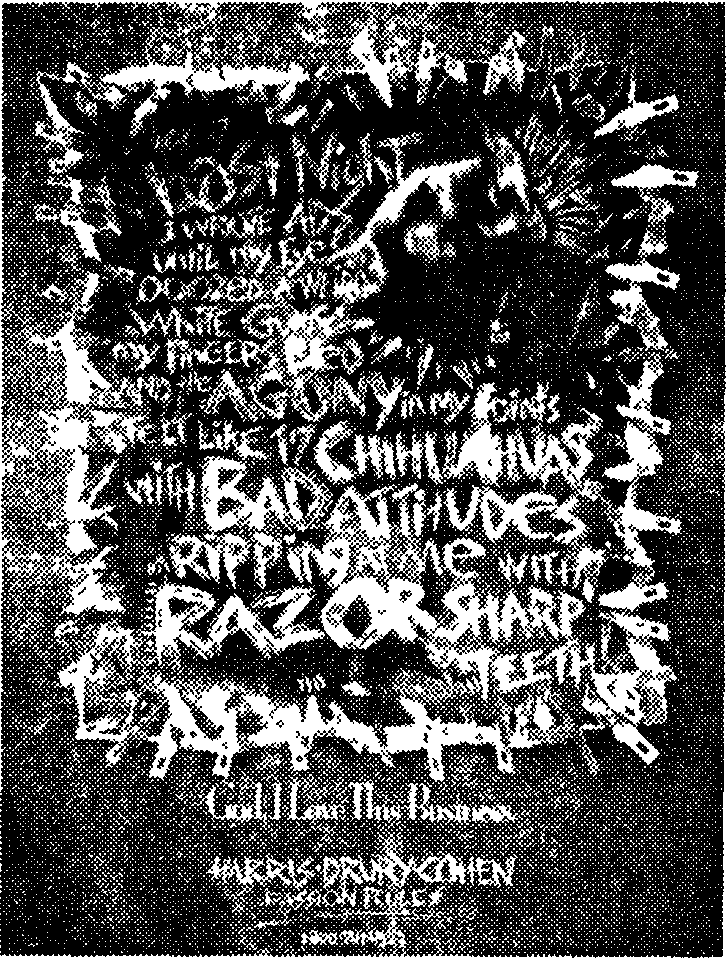 LAST NIGHT
I WORKED
until my EYES
OOZZED A
WHITE
MY FINGERS BLED
AND THE AGONY in my joints
FELT LIKE 17 CHIHUAHUAS
WITH BAD ATTITUDES
RIPPING at me WITH
RAZOR SHARP
TEETH
God, I Love This Business.
HARRIS DRURY COHEN
PASSION RULES